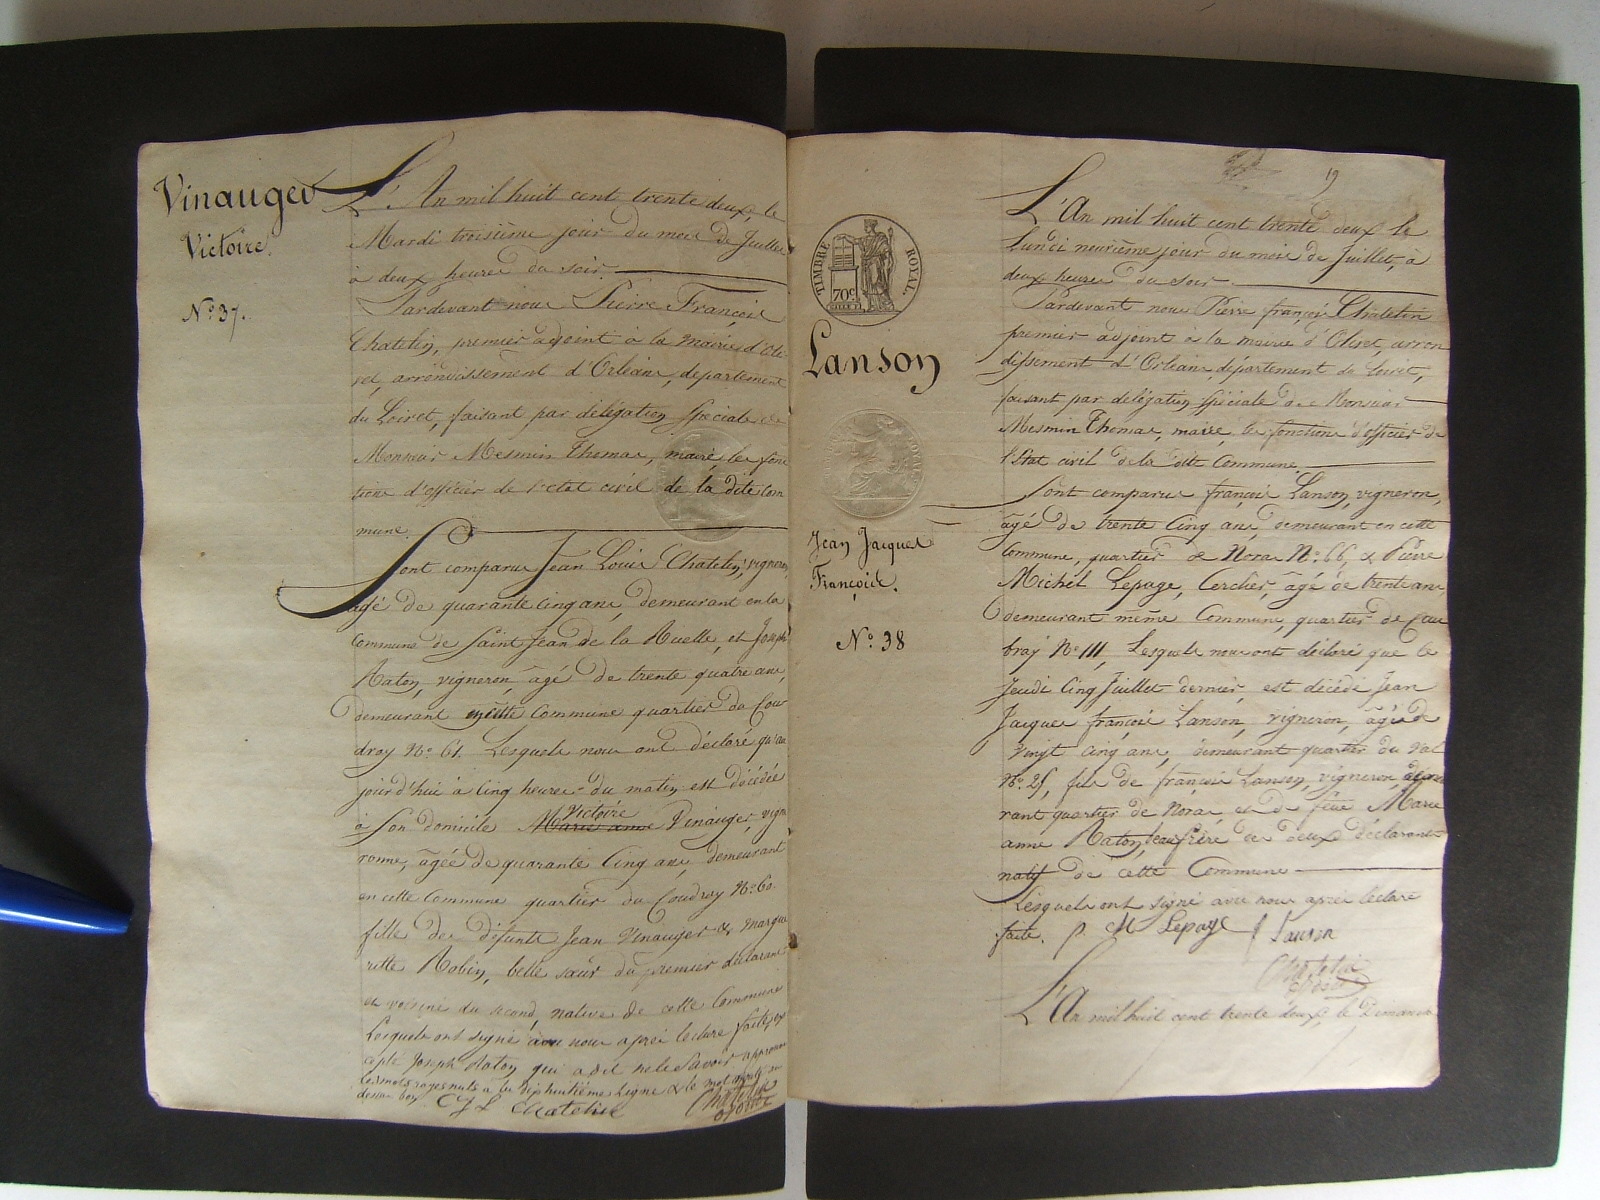 Vinauger
Victoire.
N.º 37.
L'An mil huit cent trente deux, le
Mardi troisième jour du mois de Juillet
à deux heures du soir.
Pardevant nous Pierre François
Chatelin, premier adjoint à la mairie d'Oli-
vet, arrondissement d'Orléans, département
du Loiret, faisant par délégation spéciale de
Monsieur Mesmin Thomas, maire, les fonc
tions d'officier de l'état civil de la dite Com
mune.
Sont comparus Jean Louis Chatelin, vigneron,
agé de quarante cinq ans, demeurant en la
commune de Saint Jean de la Ruelle, et Joseph
Raton, vigneron, âgé de trente quatre ans,
demeurant en cette Commune quartier du Cou
dray N.º 61. Lesquels nous ont déclaré qu'au
jourd'hui à cinq heures du matin est décédée
Victoire
à son domicile Marie anne Vinauger, vigne
ronne, âgée de quarante cinq ans, demeurant
en cette Commune quartier du Coudray N.º 60.
fille de défunts Jean Vinauger & Margue
ritte Robin, belle sœur du premier déclarant
et voisine du second, native de cette Commune
Lesquels ont signé avec nous après lecture faite, ex
cepté Joseph Raton qui a dit ne le savoir approuvé
les mots rayés nuls a la dix huitième ligne & le mot
dessus bon. C J L Chatelin Chatelin
adjoint
19
TIMBRE ROYAL.
70c
Lanson
Jean Jacques
François.
N.º 38
L'An mil huit cent trente deux le
Lundi neuvième jour du mois de Juillet, à
deux heures du soir.
Pardevant nous Pierre françois Chatelin
premier adjoint à la mairie d'Olivet, arron
dissement d'Orléans, département du Loiret,
faisant par délégation spéciale de Monsieur
Mesmin Thomas, maire, les fonctions d'officier de
l'Etat civil de la dite Commune.
Sont comparus françois Lanson, vigneron,
âgé de trente cinq ans, demeurant en cette
Commune, quartier de Noras N.º 66, & Pierre
Michel Lepage, Cerclier, âgé de trente ans,
demeurant même Commune, quartier de Cau
bray N.º 111, Lesquels nous ont déclaré que le
Jeudi cinq Juillet dernier, est décédé Jean
Jacques françois Lanson, vigneron, âgé de
vingt cinq ans, demeurant quartier du Val
N.º 25, fils de françois Lanson, vigneron, demeu
rant quartier de Noras, et de feue Marie
anne Raton, beaufrère des deux déclarants
natif de cette Commune
Lesquels ont signé avec nous après lecture
faite. p. M Lepage f Lanson
Chatelin
adjoint
L'An mil huit cent trente deux, le Dimanche